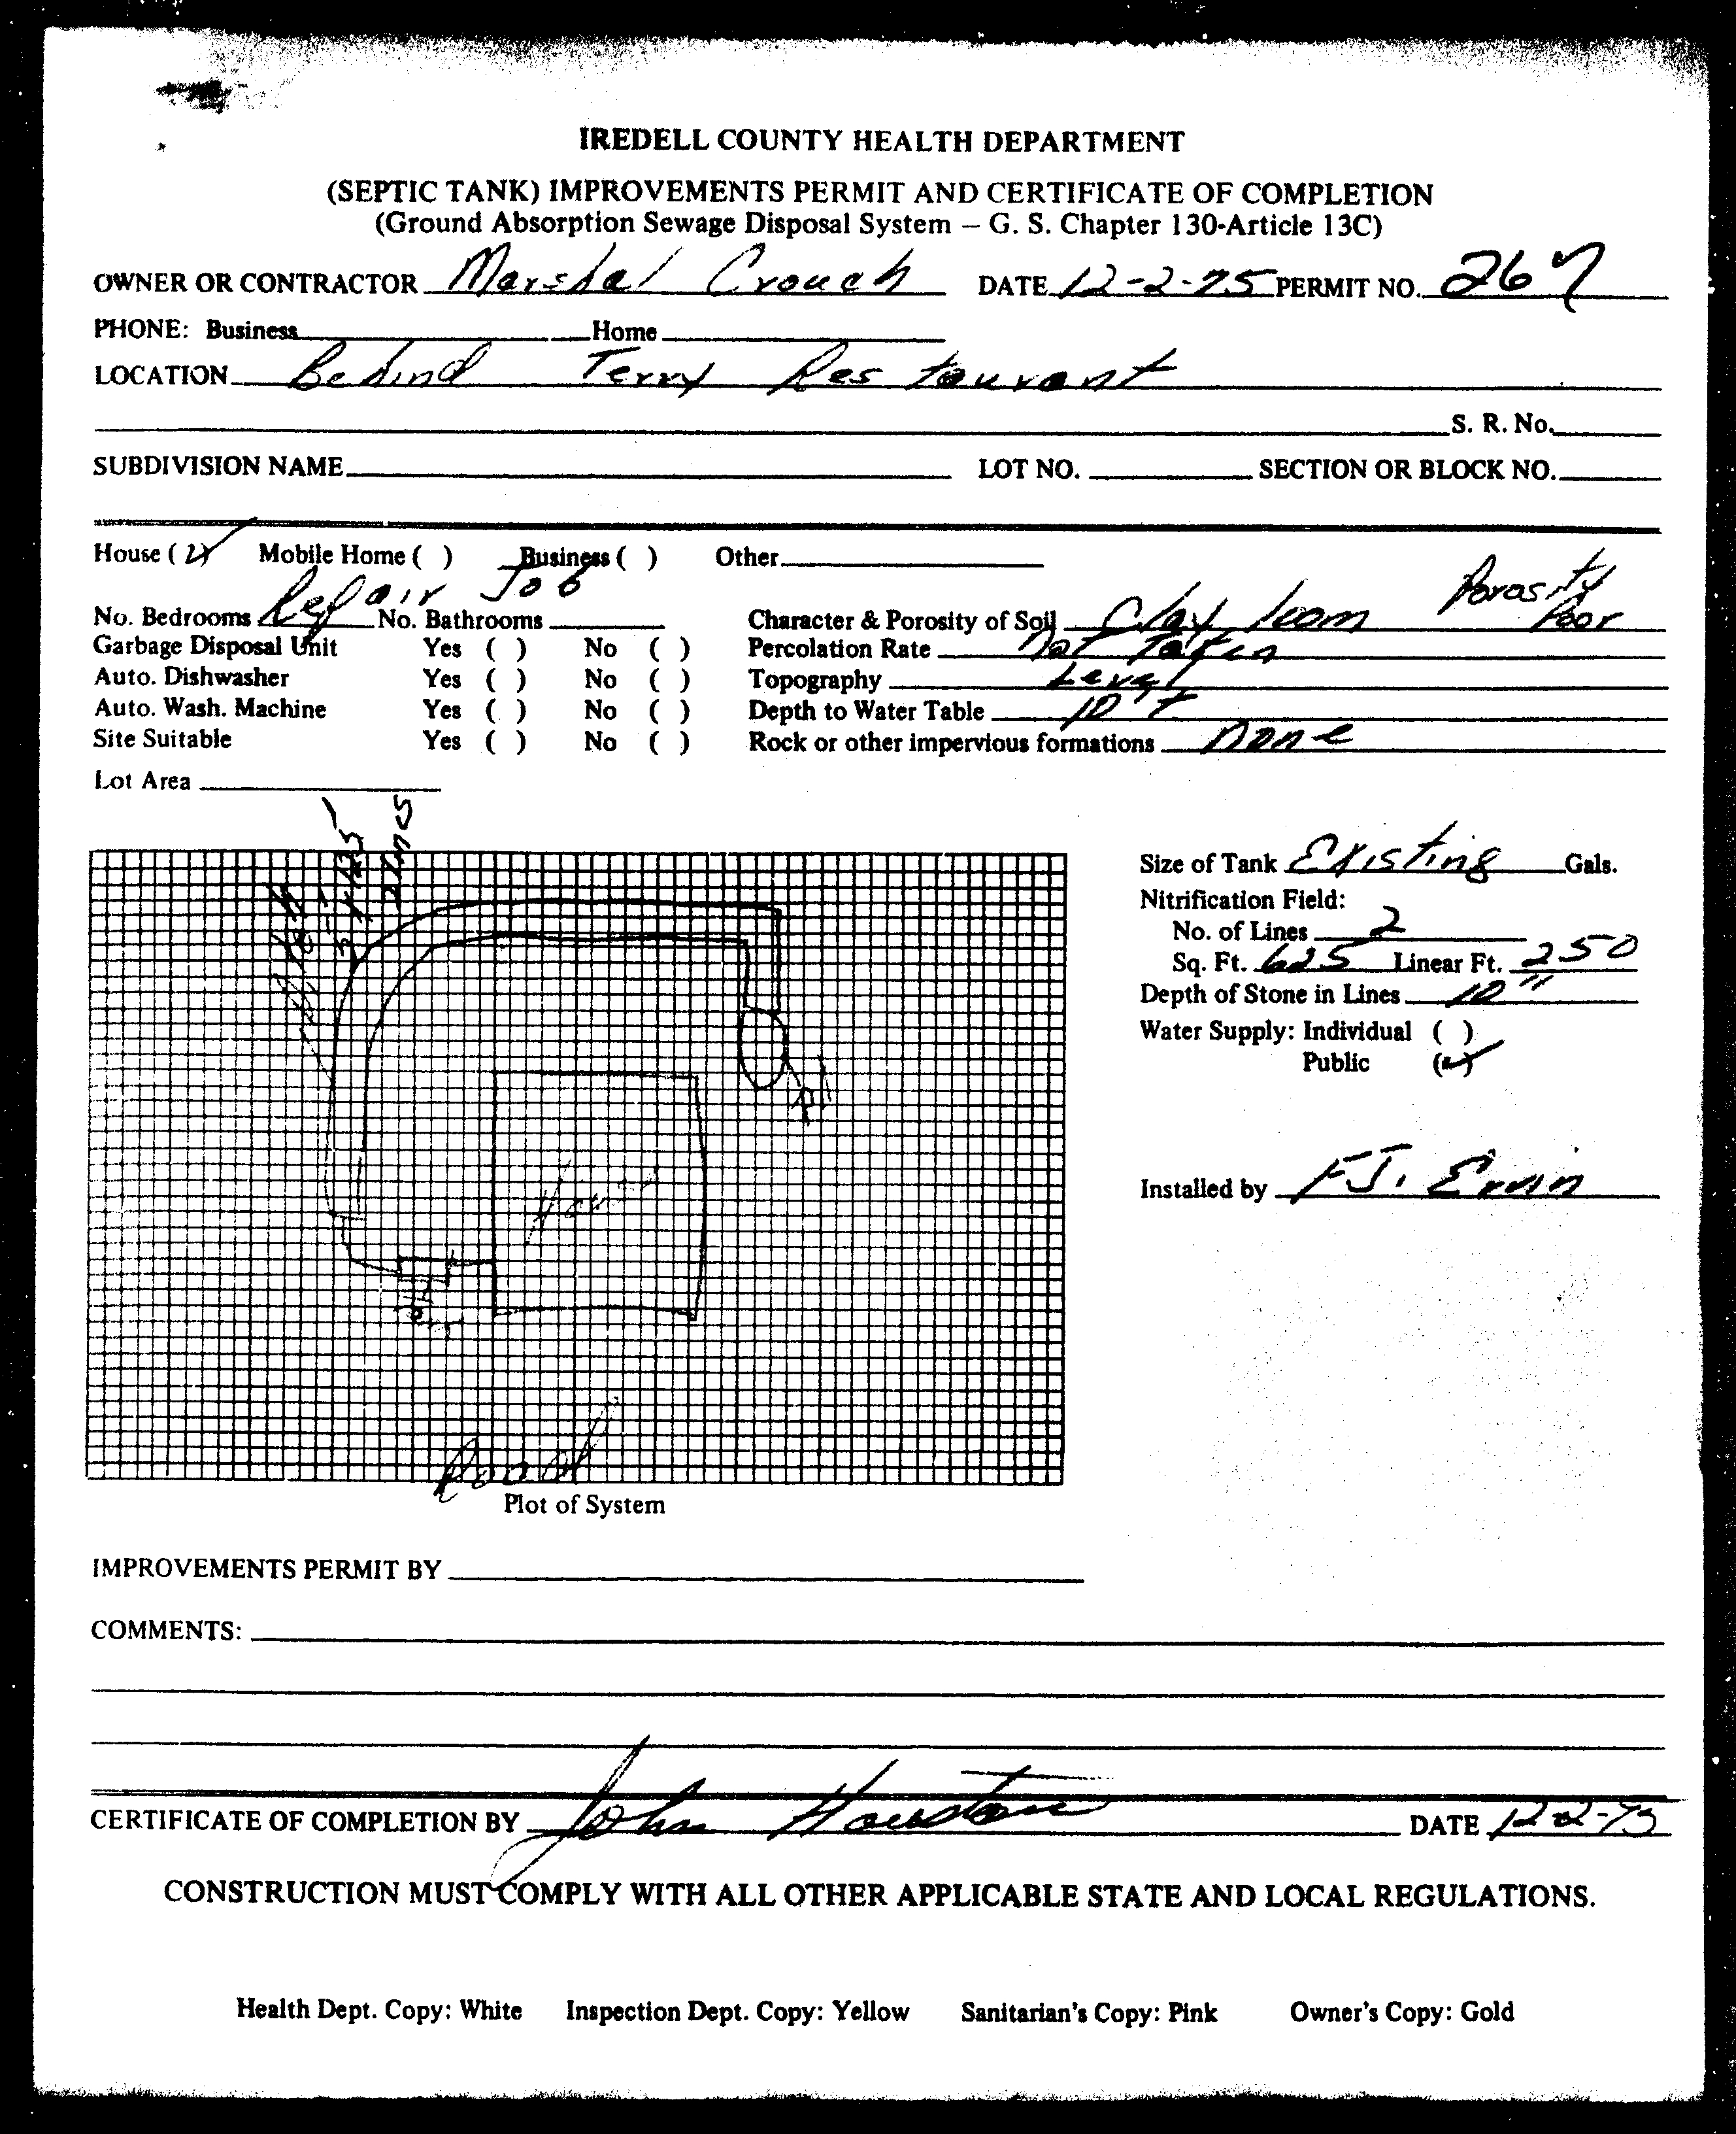 IREDELL COUNTY HEALTH DEPARTMENT
(SEPTIC TANK) IMPROVEMENTS PERMIT AND CERTIFICATE OF COMPLETION
(Ground Absorption Sewage Disposal System – G. S. Chapter 130-Article 13C)
OWNER OR CONTRACTOR Marshal Crouch DATE 12-2-75 PERMIT NO. 267
PHONE: Business Home
LOCATION Behind Terry Restaurant
S. R. No.
SUBDIVISION NAME LOT NO. SECTION OR BLOCK NO.
House ( ✓ ) Mobile Home ( ) Business ( ) Other
Repair Job
No. Bedrooms No. Bathrooms
Garbage Disposal Unit Yes ( ) No ( )
Auto. Dishwasher Yes ( ) No ( )
Auto. Wash. Machine Yes ( ) No ( )
Site Suitable Yes ( ) No ( )
Lot Area
Character & Porosity of Soil Clay loam Porosity Poor
Percolation Rate Not Taken
Topography Level
Depth to Water Table 10'+
Rock or other impervious formations None
2 lines
House
Road
Plot of System
Size of Tank Existing Gals.
Nitrification Field:
No. of Lines 2
Sq. Ft. 625 Linear Ft. 250
Depth of Stone in Lines 10"
Water Supply: Individual ( )
Public (✓)
Installed by F.J. Ervin
IMPROVEMENTS PERMIT BY
COMMENTS:
CERTIFICATE OF COMPLETION BY John Houston DATE 12-2-75
CONSTRUCTION MUST COMPLY WITH ALL OTHER APPLICABLE STATE AND LOCAL REGULATIONS.
Health Dept. Copy: White Inspection Dept. Copy: Yellow Sanitarian's Copy: Pink Owner's Copy: Gold